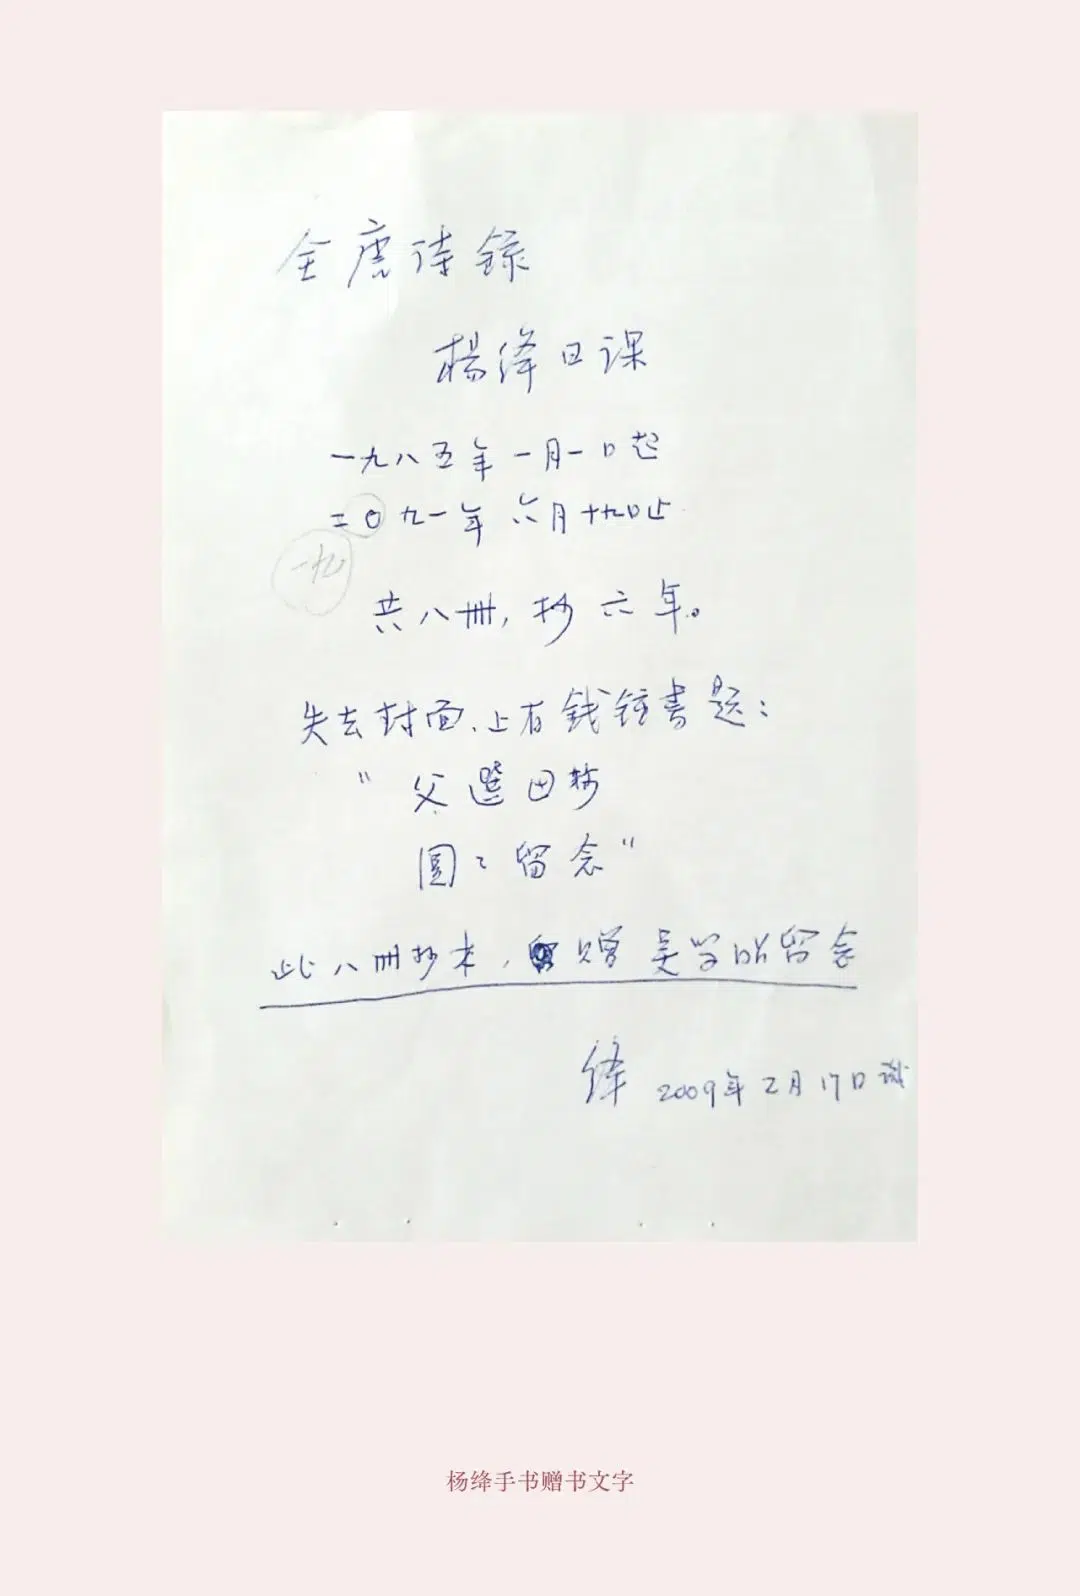 全唐诗录
楊绛日课
一九八五年一月一日起
二〇九一年六月十九日止
一九
共八冊，抄六年。
失去封面、上有钱锺書题：
“父選母抄
圆〻留念”
此八冊抄本，赠吴学昭留念
绛 2009年2月17日识
杨绛手书赠书文字